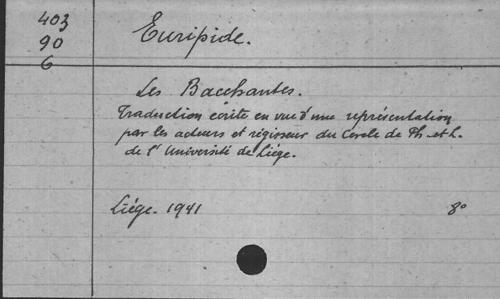 403
90
6
Euripide.
Les Bacchantes.
Traduction écrite en vue d'une représentation
par les acteurs et régisseur du Cercle de Ph. et L.
de l'Université de Liège.
Liège. 1941 8°